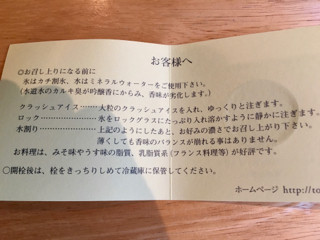 お客様へ
◎お召し上りになる前に
氷はカチ割氷、水はミネラルウォーターをご使用下さい。
(水道水のカルキ臭が吟醸香にからみ、香味が劣化します。)
クラッシュアイス………大粒のクラッシュアイスを入れ、ゆっくりと注ぎます。
ロック………………氷をロックグラスにたっぷり入れ溶かすように静かに注ぎます。
水割り………………上記のようにしたあと、お好みの濃さでお召し上がり下さい。
薄くしても香味のバランスが崩れる事はありません。
お料理は、みそ味やうす味の脂質、乳脂質系(フランス料理等)が好評です。
○開栓後は、栓をきっちりしめて冷蔵庫に保管してください。
ホームページ http://to